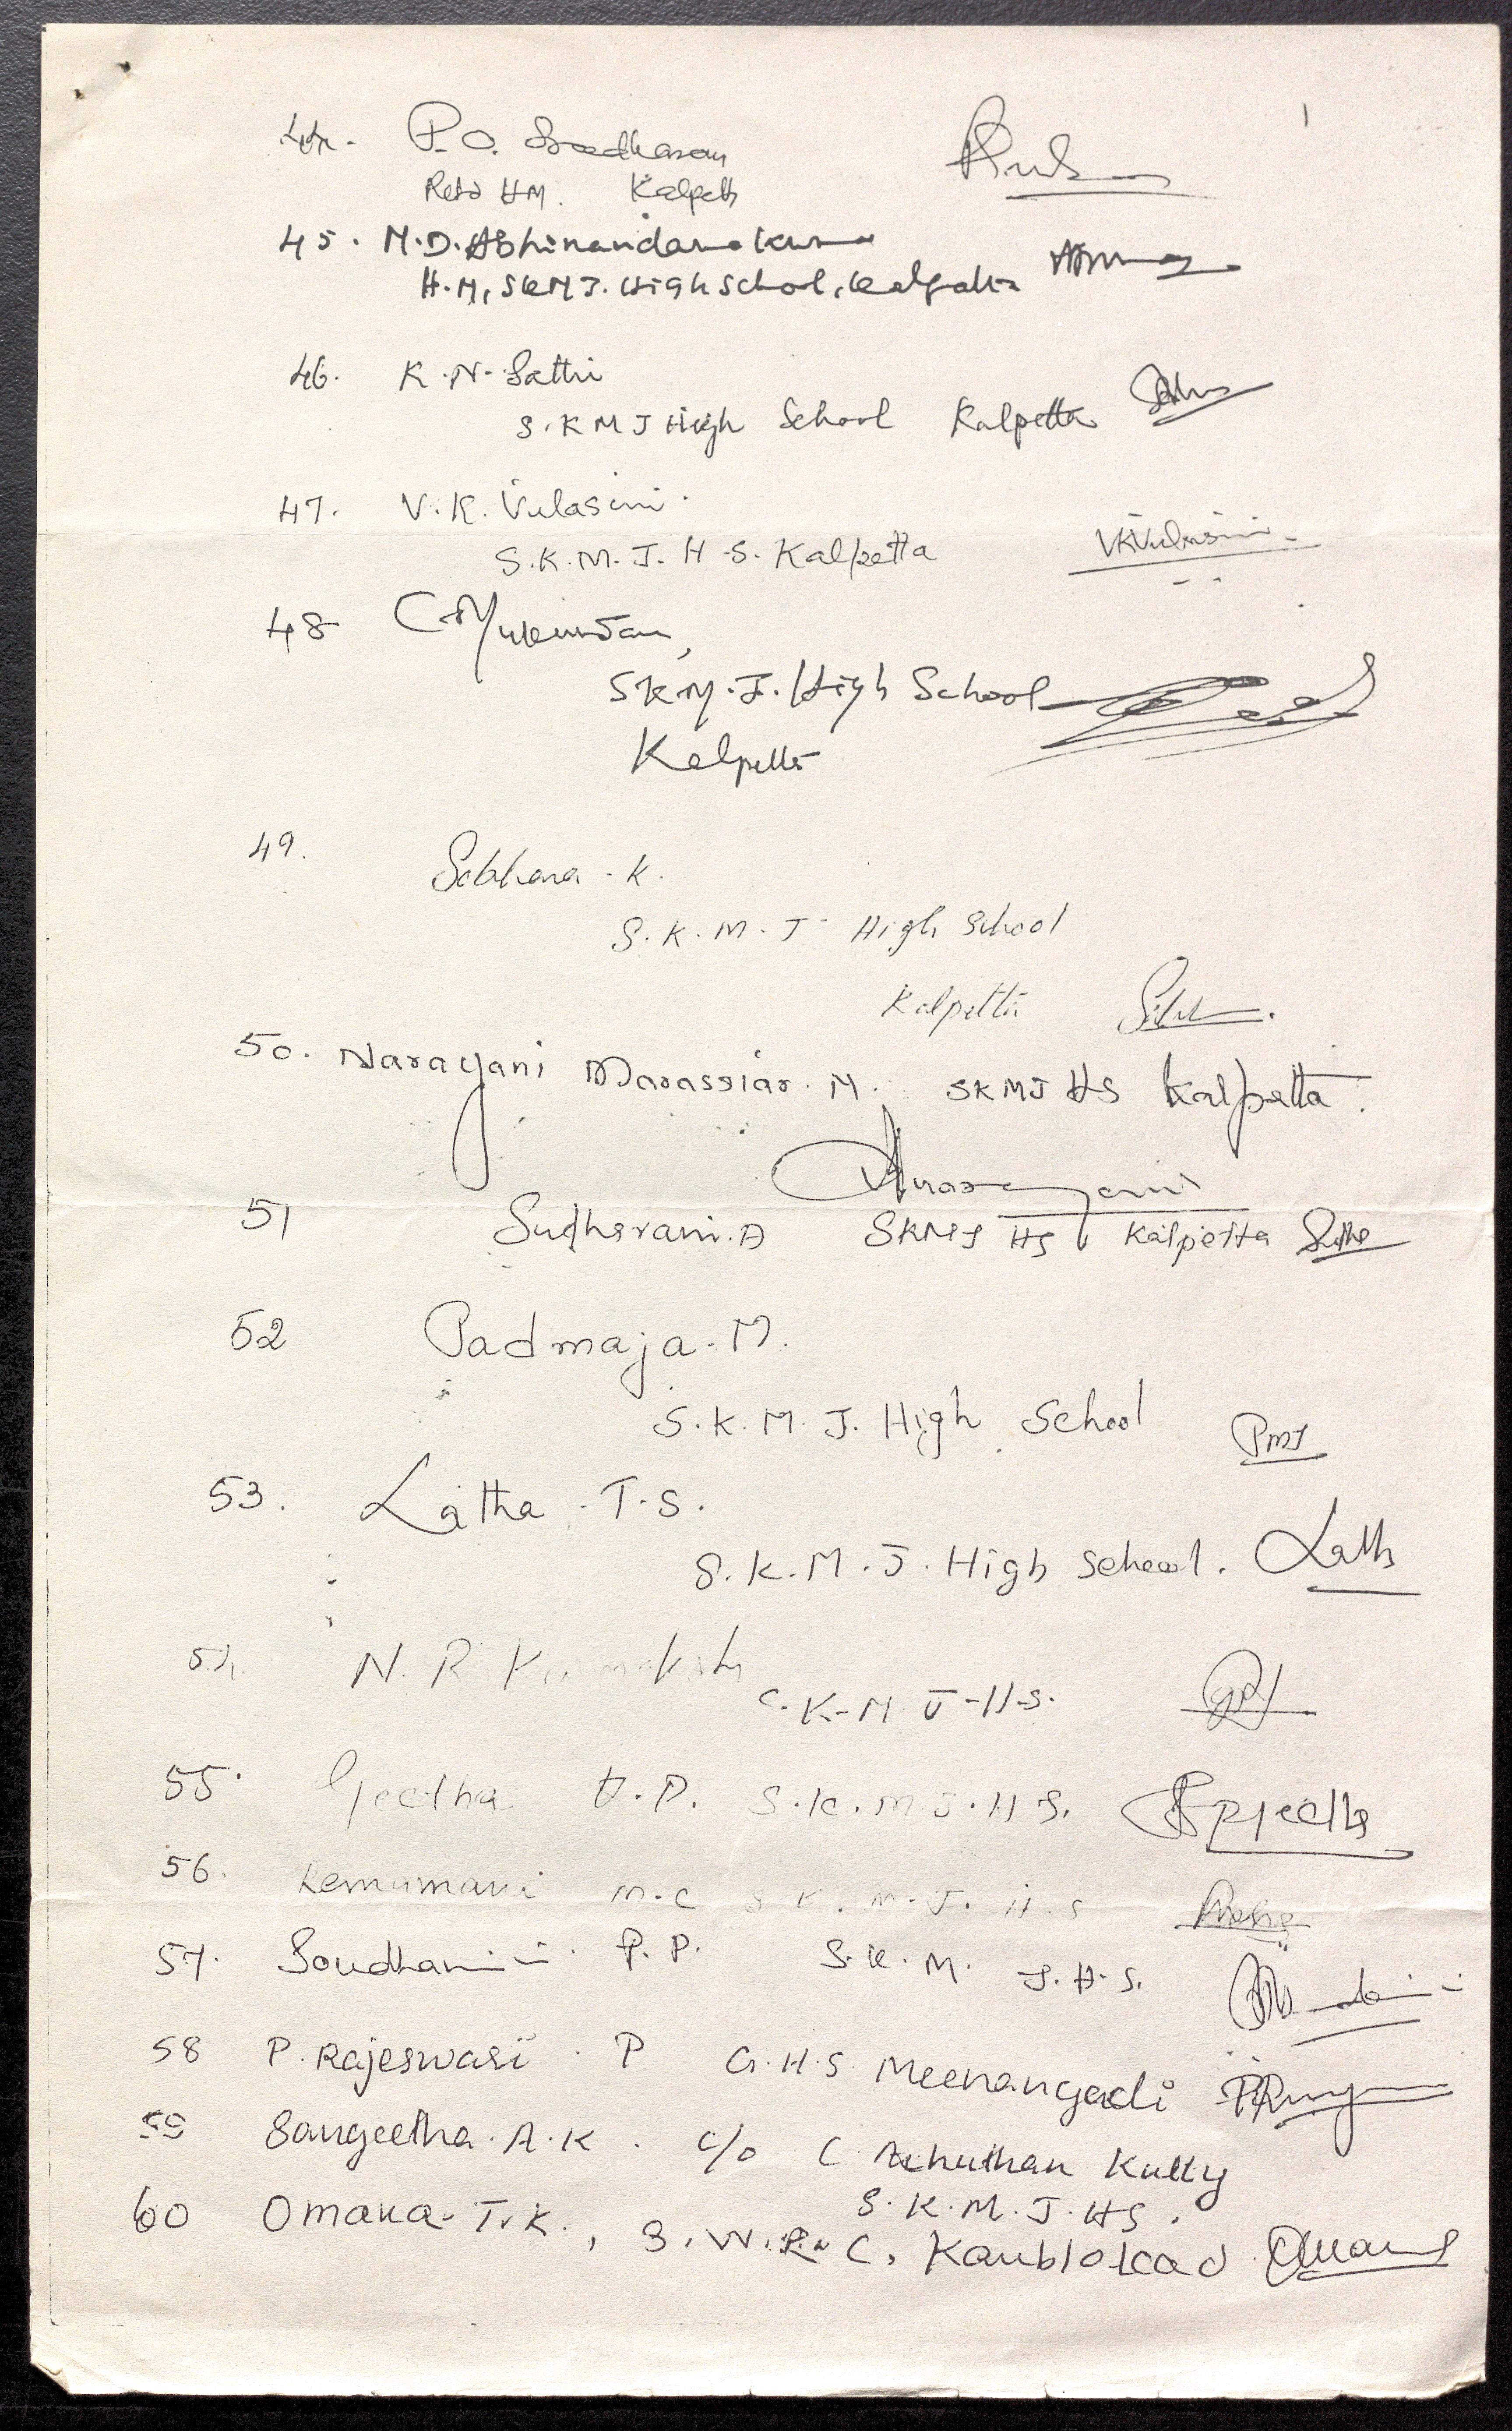 44. P.O. Sreedharan
Retd HM. Kalpetta
45. M.D. Abhinandana kumar
H.M, SKMJ. High School, Kalpetta
46. K.N. Sathi
S.K M J High School Kalpetta
47. V.K. Vilasini.
S.K.M.J.H.S. Kalpetta VKVilasini
48 C Mukundan,
SKM.J. High School
Kalpetta
49. Sobhana. K.
S.K.M.J High School
Kalpetta
50. Narayani Marassiar. M. SKMJ HS Kalpetta.
Narayani
51 Sudharani. A SKMJ HS Kalpetta Sudha
52 Padmaja. M.
S.K.M.J. High School PMJ
53. Latha. T.S.
S.K.M.J. High School. Latha
54. N.R
S.K.M J.H.S.
55. Geetha K.P. S.K.M.J.H.S.
56. Remamani M.C S K.M.J.H.S
57. Soudhamini P.P. S.K.M. J.H.S.
58 P. Rajeswari. P G.H.S. Meenangadi
59 Sangeetha. A.K. c/o C Achuthan Kutty
S.K.M.J.HS.
60 Omana. T.K., S.W.R.C, Kambalakad Omana